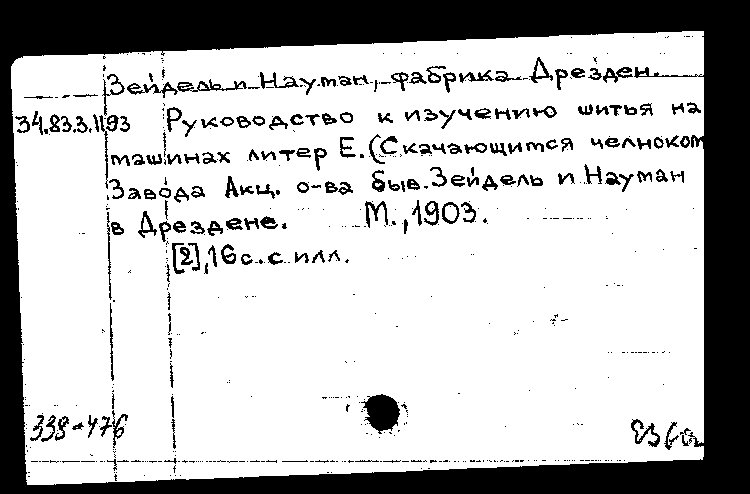 Зейдель и Науман, фабрика Дрезден.
34.83.3.1193 Руководство к изучению шитья на
машинах литер Е. (Скачающимтся челноком
Завода Акц. о-ва быв. Зейдель и Науман
в Дрездене. М., 1903.
[2], 16 с. с илл.
338-476